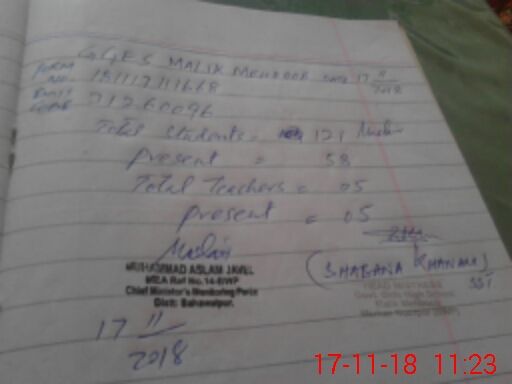 GGES MALIK MEHBOOB DATE 17 11/2018
FORM NO. 181117111668
EMIS CODE 31260096
Total Students = 121
Present = 58
Total Teachers = 05
Present = 05
MUHAMMAD ASLAM JAVED
MEA Ref No.14-BWP
Chief Minister's Monitoring Force
Distt: Bahawalpur.
(SHABANA KHANAM)
SST
HEAD MISTRESS
Govt. Girls High School
17 11/2018
17-11-18 11:23